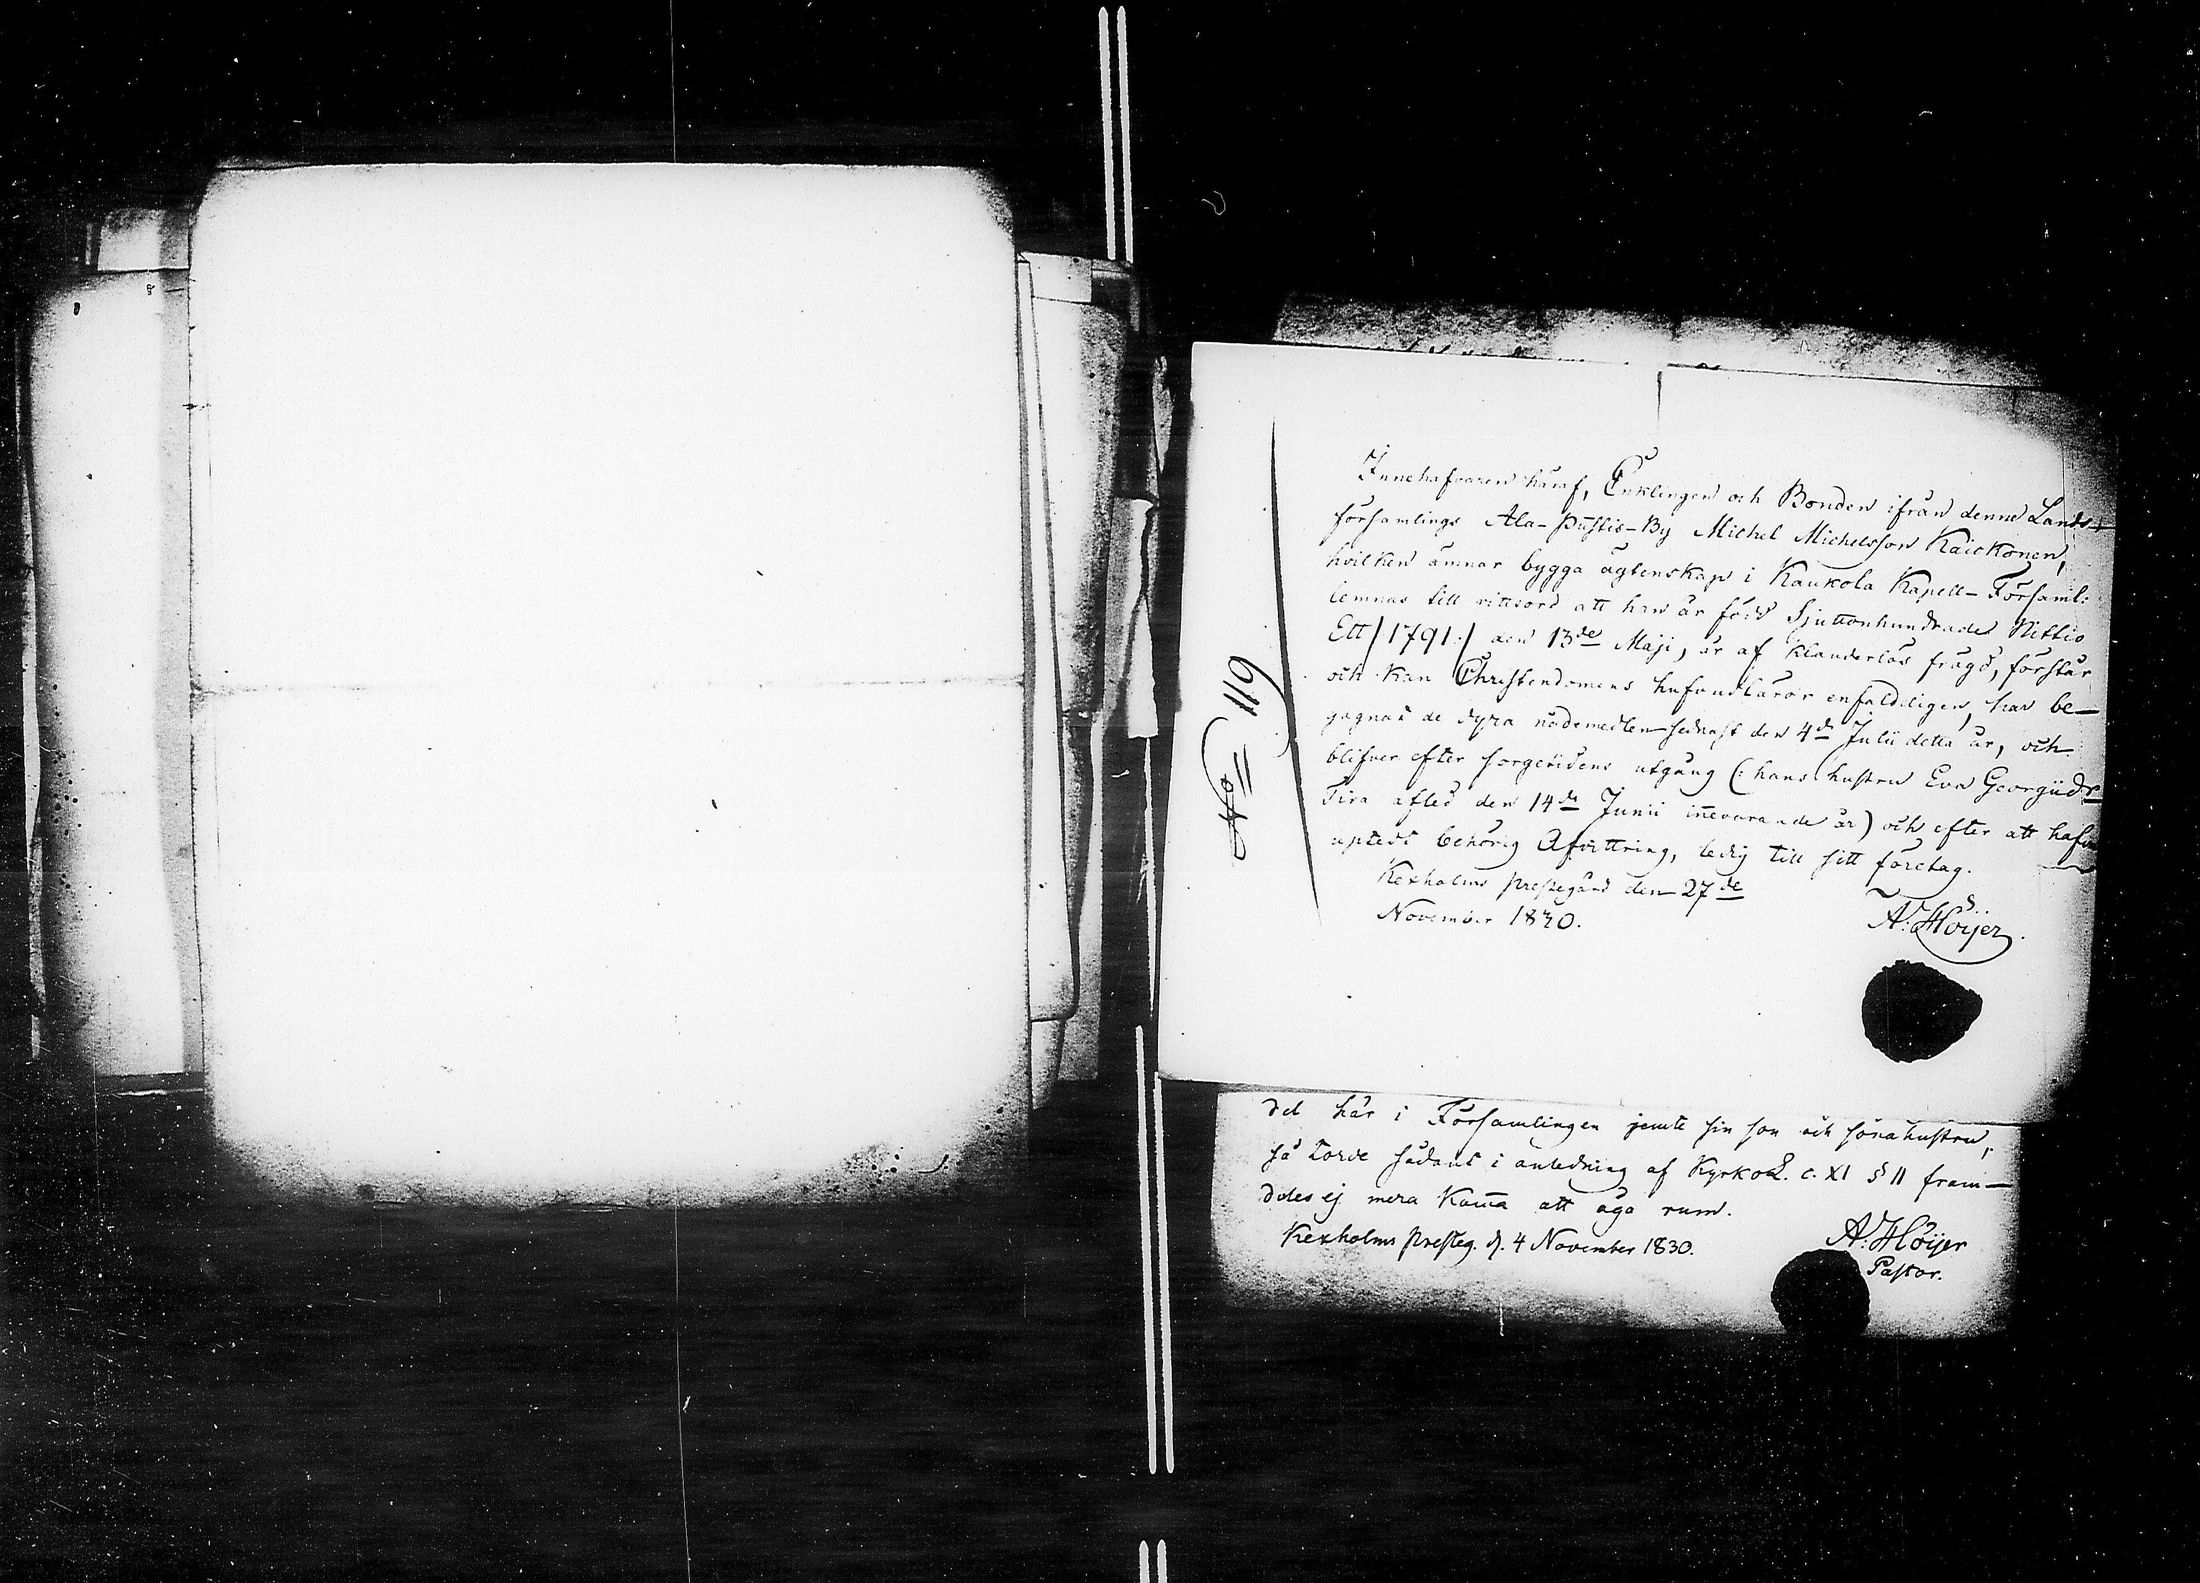 No 119
Innehafvaren häraf, Enklingen och Bonden ifrån denne Lands-
församlings Ala-Pustis-By Michel Michelsson Kaickonen,
hvilken ämnar bygga ägtenskap i Kaukola Kapell-Församl:
lemnas till vittsord att han är född Sjuttonhundrade Nittio
Ett /:1791:/ den 13de Maji, är af klanderlös frägd, förstår
och kan Christendomens hufvudläror enfaldeligen, har be-
gagnat de dyra nådemedlen sednast den 4de Julii detta år, och
blifver efter sorgetidens utgång (: hans hustru Eva Georgiidr
Tira afled den 14de Junii innevarande år) och efter att hafva
uptedt behörig Afvittring, ledig till sitt företag.
Kexholms prestegård den 27de
November 1830.
A: Höijer.
del här i Församlingen jemte sin son och sonahustru,
så torde sådant i anledning af KyrkoL. c. XI § 11 fram-
deles ej mera komma att äga rum.
Kexholms Presteg. d. 4 November 1830.
A: Höijer
Pastor.